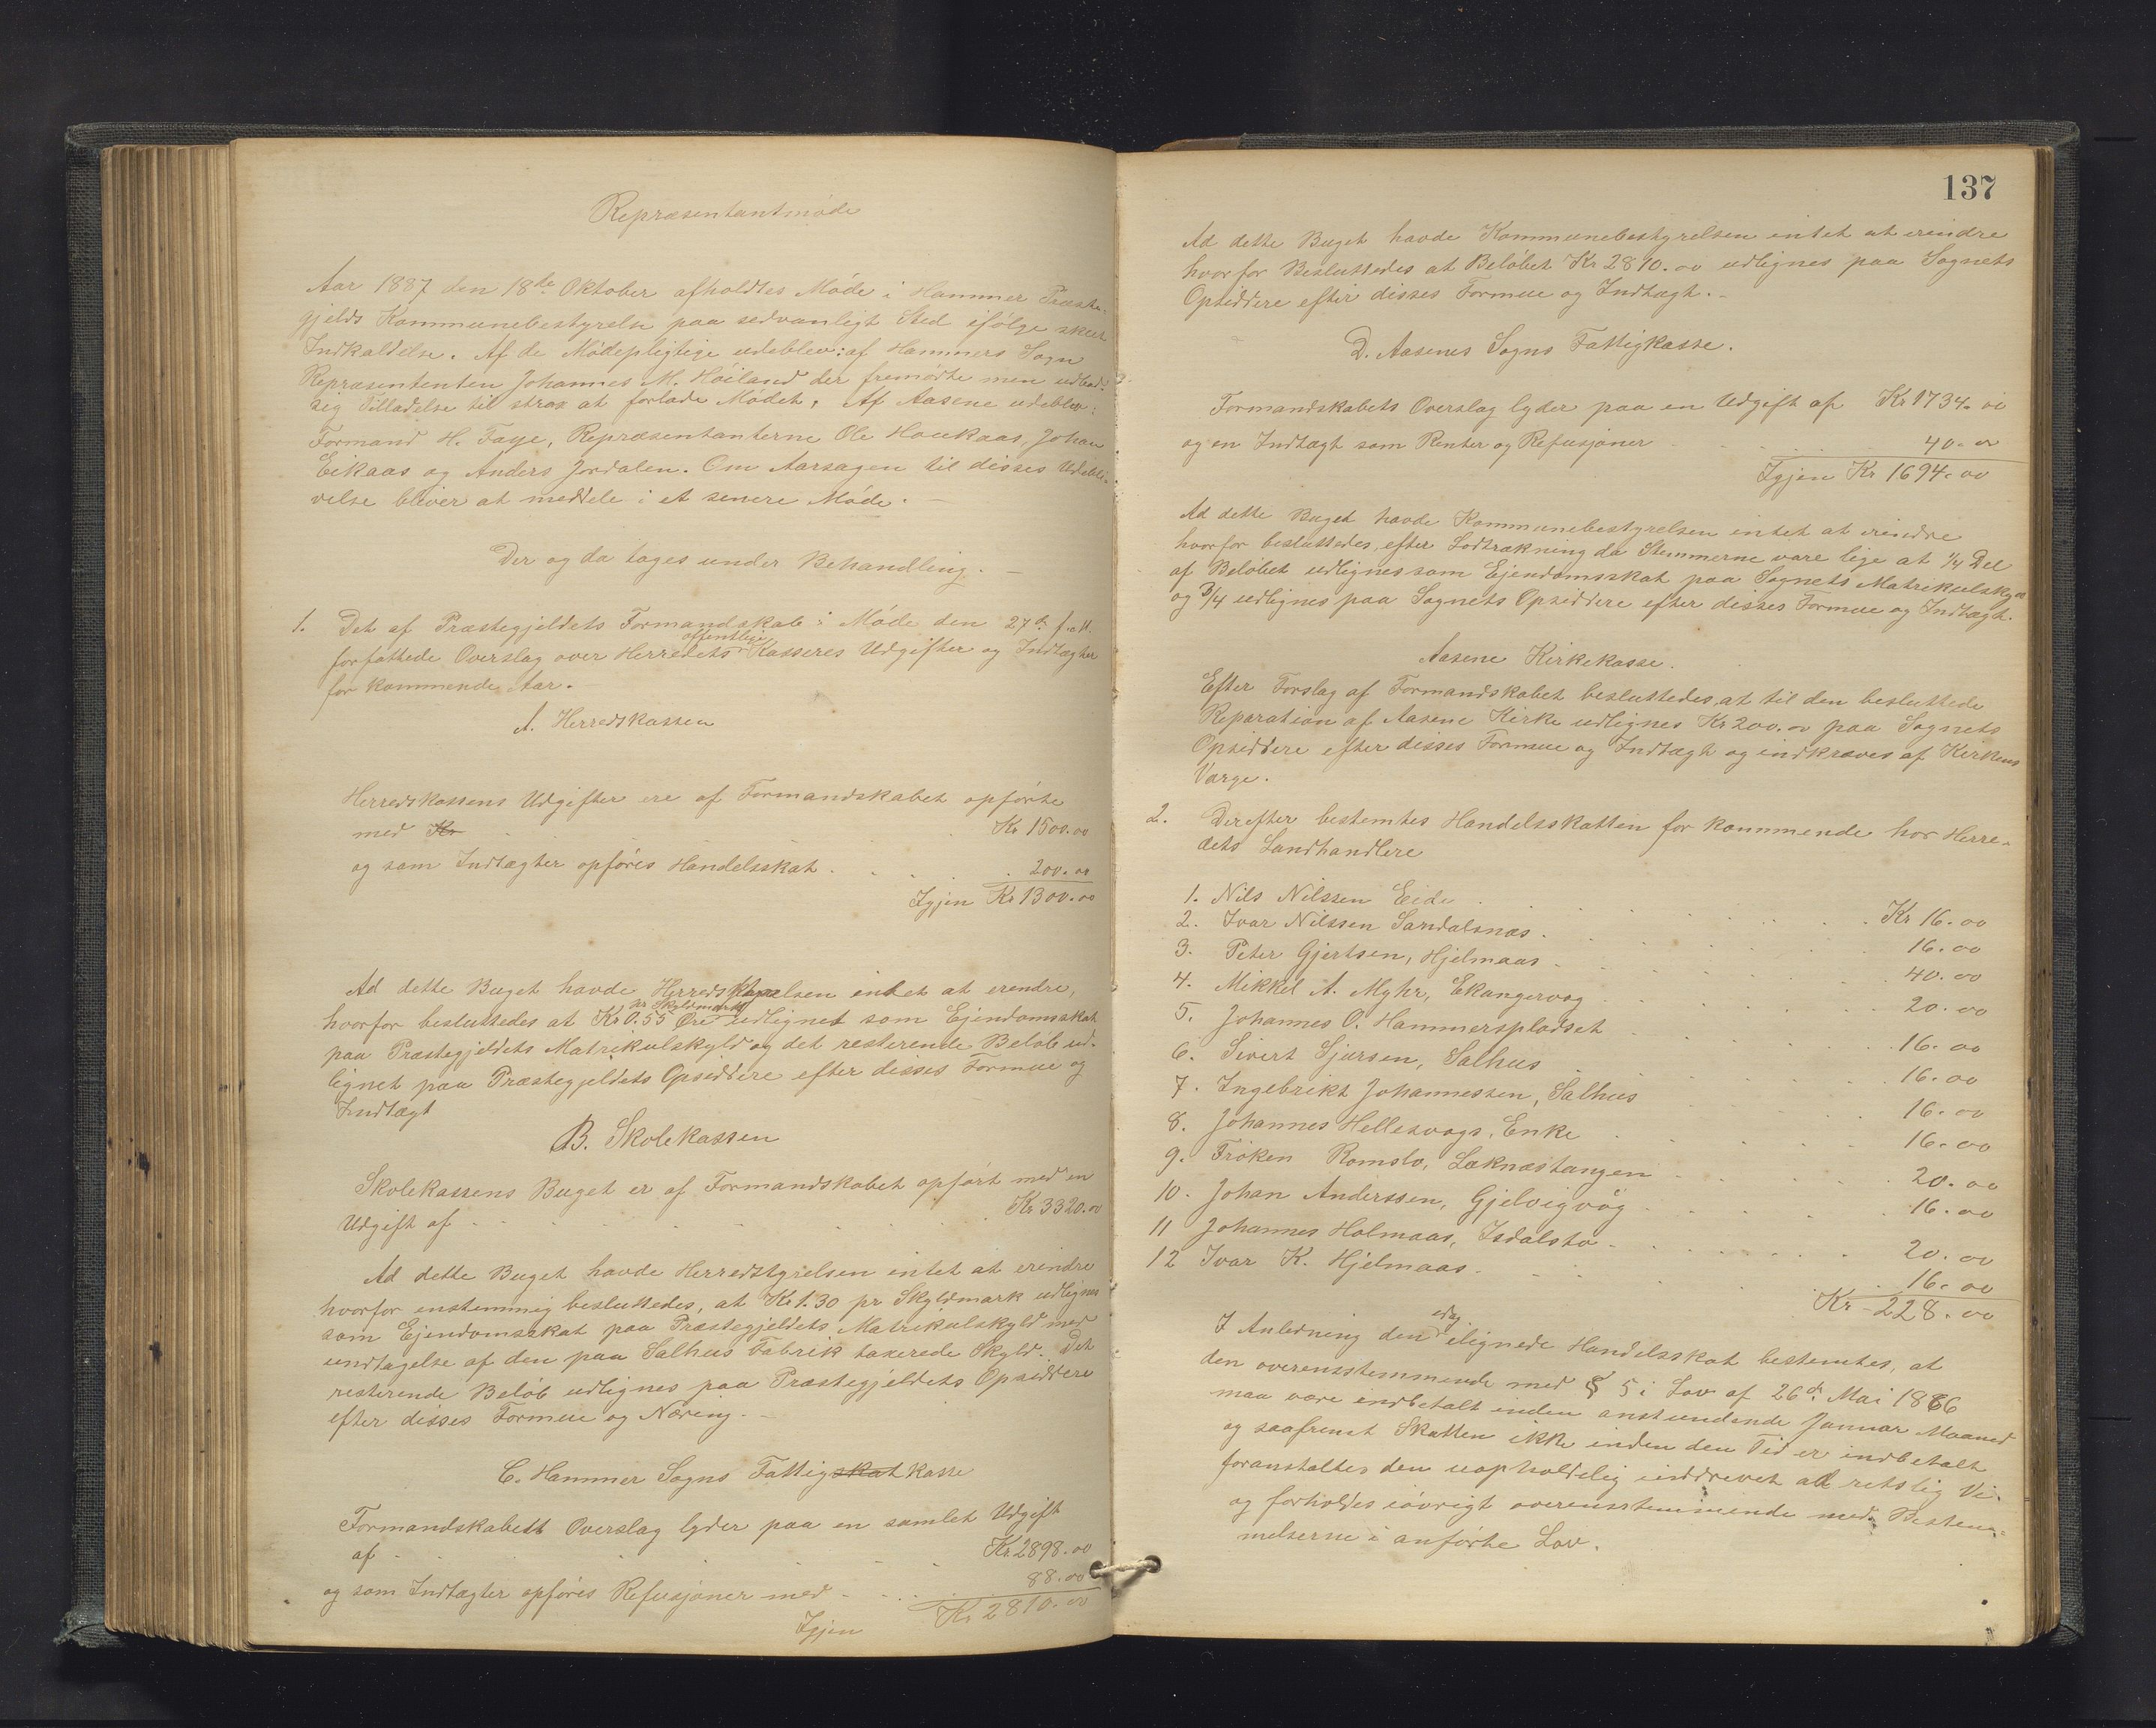 Repræsentantmøde
Aar 1887 den 18de Oktober afholdtes Møde i Hammer Præste-
gjelds Kommunebestyrelse paa sedvanligt Sted ifølge skeet
Indkaldelse. Af de Mødepligtige udeblev: af Hammers Sogn
Repræsententen Johannes M. Høiland der fremødte men udbad
sig Tilladelse til strax at forlade Mødet. Af Aasene udeblev:
Formand H. Faye, Repræsentanterne Ole Houkaas, Johan
Eikaas og Anders Jordalen. Om Aarsagen til disses Udebli-
velse bliver at meddele i et senere Møde. -
Der og da toges under Behandling. -
1. Det af Præstegjeldets Formandskab i Møde den 27de f.M.
forfattede Overslag over Herredets offentlige Kasseres Udgifter og Indtægter
for kommende Aar.
A. Herredskassen
Herredskassens Udgifter ere af Formandskabet opførte
med Kr Kr 1500.00
og som Indtægter opføres Handelsskat 200.00
Igjen Kr 1300.00
Ad dette Buget havde Herredstyrelsen intet at erendre,
hvorfor besluttedes at Kr 0.55 Øre pr Skyldmark udlignet som Ejendomsskat
paa Præstegjeldets Matrikulskyld og det resterende Beløb ud-
lignet paa Præstegjeldets Opsiddere efter disses Formue og
Indtægt
B. Skolekassen
Skolekassens Buget er af Formandskabet opført med en
Udgift af Kr 3320.00
Ad dette Buget havde Herredstyrelsen intet at erindre
hvorfor enstemmig besluttedes, at Kr 1.30 pr Skyldmark udlignes
som Ejendomsskat paa Præstegjeldets Matrikulskyld med
undtagelse af den paa Salhus Fabrik taxerede Skyld. Det
resterende Beløb udlignes paa Præstegjeldets Opsiddere
efter disses Formue og Næring. -
C. Hammer Sogns Fattigskatkasse
Formandskabets Overslag lyder paa en samlet Udgift
af Kr. 2898.00
og som Indtægter opføres Refusjoner med 88.00
Igjen Kr 2810.00
137
Ad dette Buget havde Kommunebestyrelsen intet at erindre
hvorfor Besluttedes at Beløbet Kr 2810.00 udlignes paa Sognets
Opsiddere efter disses Formue og Indtægt. -
D. Aasenes Sogns Fattigkasse.
Formandskabets Overslag lyder paa en Udgift af Kr 1734.00
og en Indtægt som Renter og Refusjoner 40.00
Igjen Kr 1694.00
Ad dette Buget havde Kommunebestyrelsen intet at erindre
hvorfor besluttedes, efter Lodtrækning da Stemmerne vare lige at 1/4 Del
af Beløbet udlignes som Ejendomsskat paa Sognets Matrikulskyld
og 3/4 udlignes paa Sognets Opsiddere efter disses Formue og Indtægt.
Aasene Kirkekasse.
Efter Forslag af Formandskabet besluttedes, at til den besluttede
Reparation af Aasene Kirke udlignes Kr 200.00 paa Sognets
Opsiddere efter disses Formue og Indtægt og indkræves af Kirkens
Værge.
2. Derefter bestemtes Handelsskatten for kommende hos Herre-
dets Landhandlere
1. Nils Nilssen Eide Kr 16.00
2. Ivar Nilssen Sandalsnæs 16.00
3. Peter Gjertsen, Hjelmaas 40.00
4. Mikkel A. Myhr, Ekangervog 20.00
5. Johannes O. Hammerspladset 16.00
6. Sivert Sjursen, Salhus 16.00
7. Ingebrikt Johannessen, Salhus 16.00
8. Johannes Hellesvogs. Enke 16.00
9. Frøken Romslo, Læknæstangen 20.00
10. Johan Anderssen, Gjelvigvåg 16.00
11 Johannes Holmaas, Isdalstø 20.00
12 Ivar K. Hjelmaas 16.00
Kr 228.00
I Anledning den idag ilignede Handelsskat bestemtes, at
den overensstemmende med § 5 i Lov af 26de Mai 1866
maa være indbetalt inden anstundende Januar Maaned
og saafremt Skatten ikke inden den Tid er indbetalt
foranstaltes den uopholdelig inddrevet ad retslig Vei
og forholdes iøvrigt overensstemmende med Bestem-
melserne i anførte Lov.